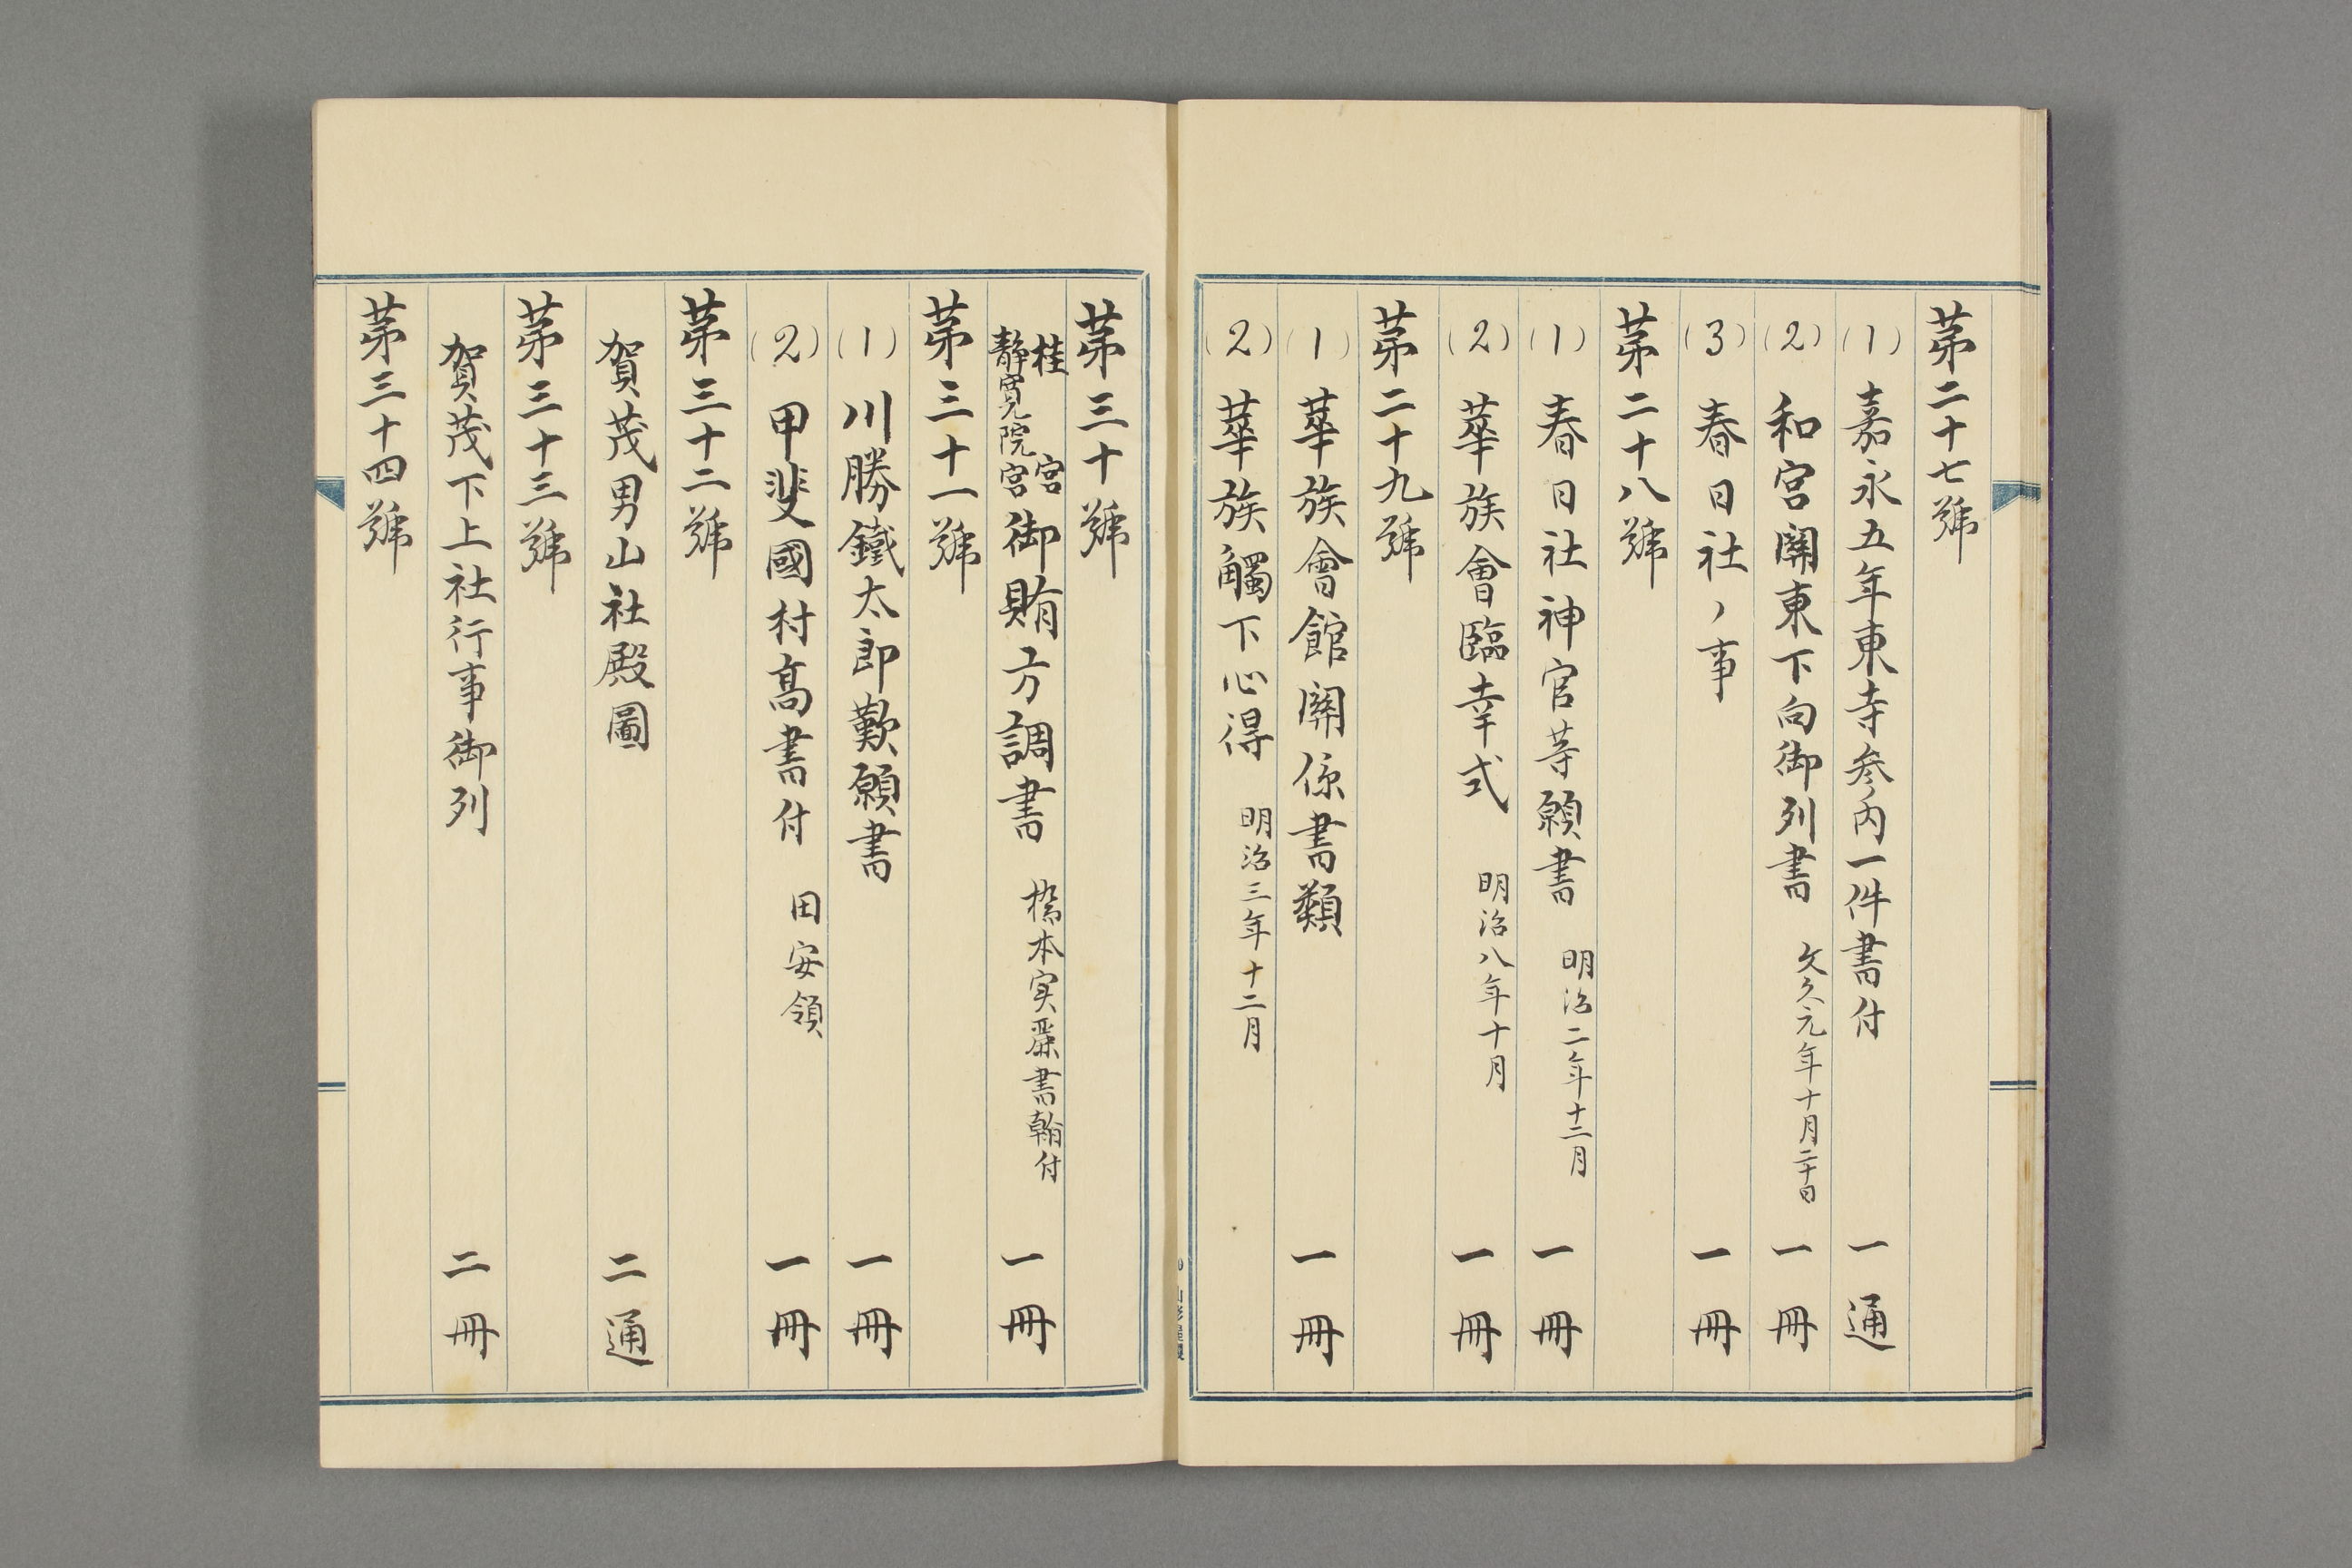 第二十七號
(1) 嘉永五年東寺参内一件書付 一通
(2) 和宮關東下向御列書 文久元年十月二十日 一冊
(3) 春日社ノ事 一冊
第二十八號
(1) 春日社神官等願書 明治二年十二月 一冊
(2) 華族會臨幸式 明治八年十月 一冊
第二十九號
(1) 華族會館關係書類 一冊
(2) 華族觸下心得 明治三年十二月
第三十號
桂宮
静寛院宮 御賄方調書 橋本実麗書翰付 一冊
第三十一號
(1) 川勝鐵太郎歎願書 一冊
(2) 甲斐國村髙書付 田安領 一冊
第三十二號
賀茂男山社殿圖 二通
第三十三號
賀茂下上社行事御列 二冊
第三十四號